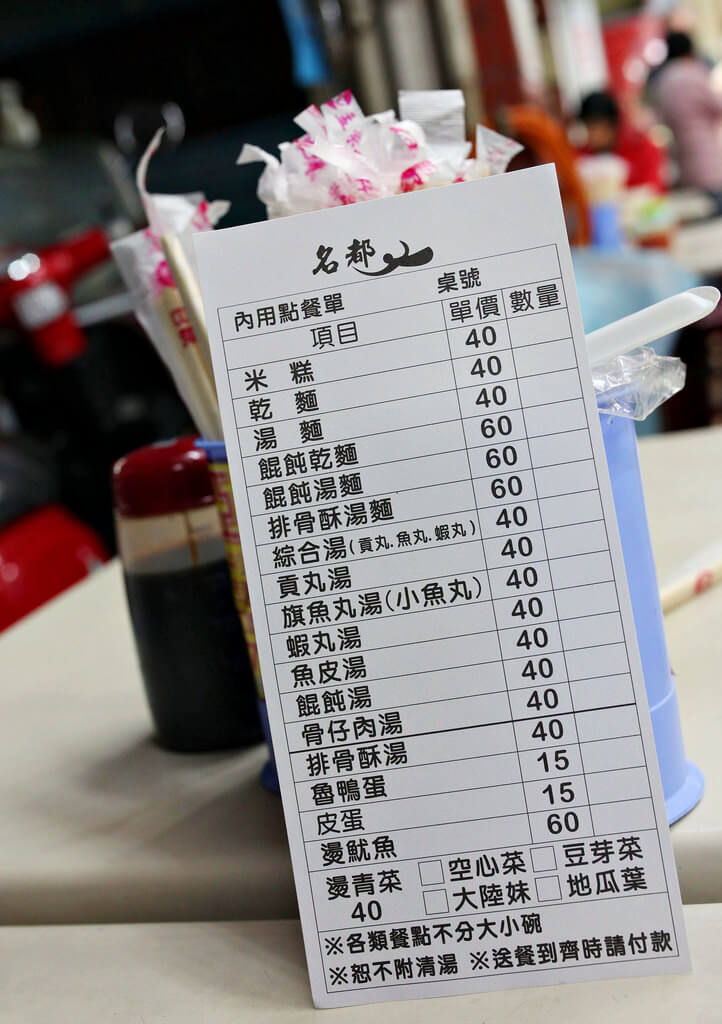 名都
內用點餐單 桌號
項目 單價 數量
米糕 40
乾麵 40
湯麵 40
餛飩乾麵 60
餛飩湯麵 60
排骨酥湯麵 60
綜合湯(貢丸.魚丸.蝦丸) 40
貢丸湯 40
旗魚丸湯(小魚丸) 40
蝦丸湯 40
魚皮湯 40
餛飩湯 40
骨仔肉湯 40
排骨酥湯 40
魯鴨蛋 15
皮蛋 15
燙魷魚 60
燙青菜 □空心菜 □豆芽菜
40 □大陸妹 □地瓜葉
※各類餐點不分大小碗
※恕不附清湯 ※送餐到齊時請付款